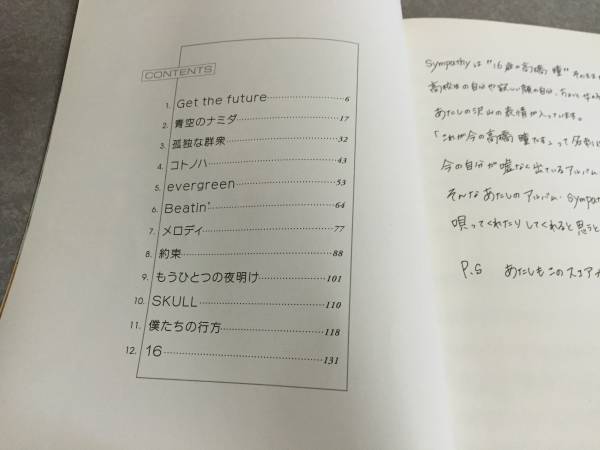 CONTENTS
1. Get the future 6
2. 青空のナミダ 17
3. 孤独な群衆 32
4. コトノハ 43
5. evergreen 53
6. Beatin' 64
7. メロディ 77
8. 約束 88
9. もうひとつの夜明け 101
10. SKULL 110
11. 僕たちの行方 118
12. 16 131
Sympathyは"16歳の高橋 瞳"
高校生の自分や
あたしの沢山の表情が入っています。
「これが今の高橋 瞳です」って
今の自分が嘘なく出ているアルバム
そんなあたしのアルバム・Sympat
唄ってくれたりしてくれると思うと
P.S あたしもこのスコア